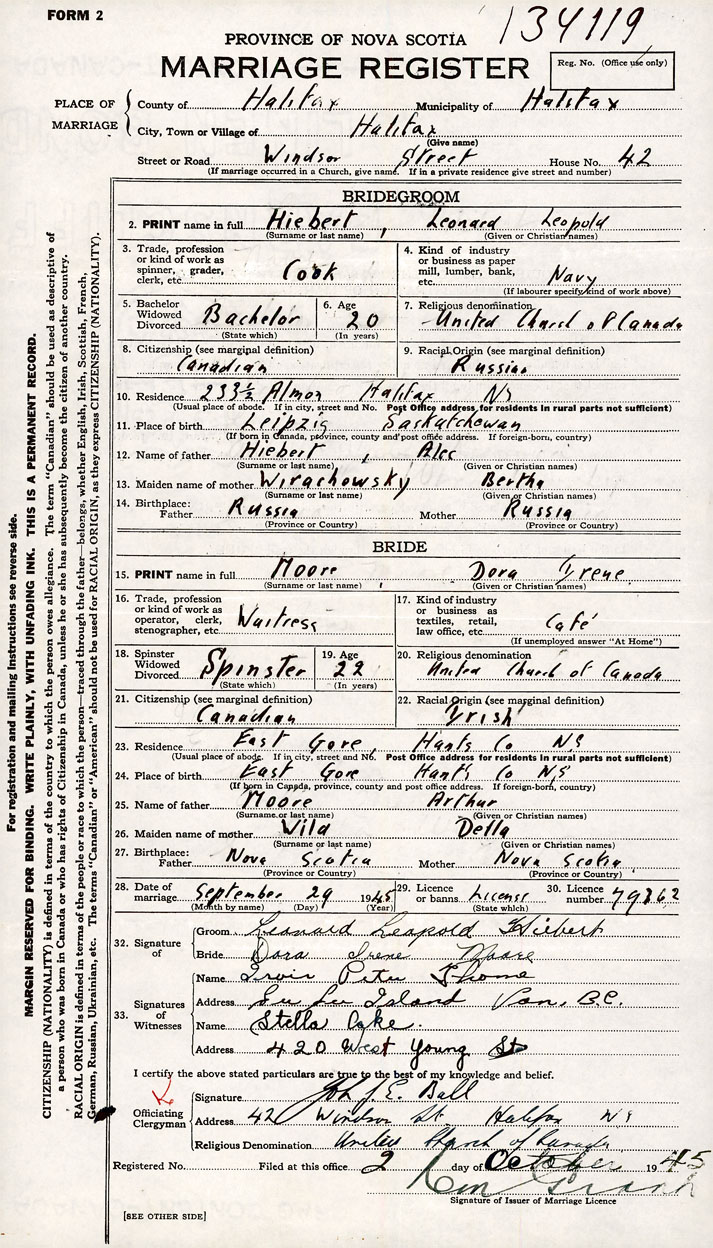 FORM 2
134119
PROVINCE OF NOVA SCOTIA
MARRIAGE REGISTER
Reg. No. (Office use only)
PLACE OF MARRIAGE
County of Halifax Municipality of Halifax
City, Town or Village of Halifax
(Give name)
Street or Road Windsor Street House No. 42
(If marriage occurred in a Church, give name. If in a private residence give street and number)
BRIDEGROOM
2. PRINT name in full Hiebert, Leonard Leopold
(Surname or last name) (Given or Christian names)
3. Trade, profession or kind of work as spinner, grader, clerk, etc. Cook
4. Kind of industry or business as paper mill, lumber, bank, etc. Navy
(If labourer specify kind of work above)
5. Bachelor Widowed Divorced Bachelor
(State which)
6. Age 20
(In years)
7. Religious denomination United Church of Canada
8. Citizenship (see marginal definition) Canadian
9. Racial Origin (see marginal definition) Russian
10. Residence 233½ Almon Halifax NS
(Usual place of abode. If in city, street and No. Post Office address for residents in rural parts not sufficient)
11. Place of birth Leipzig Saskatchewan
(If born in Canada, province, county and post office address. If foreign-born, country)
12. Name of father Hiebert, Alec
(Surname or last name) (Given or Christian names)
13. Maiden name of mother Wirachowsky Bertha
(Surname or last name) (Given or Christian names)
14. Birthplace: Father Russia Mother Russia
(Province or Country) (Province or Country)
BRIDE
15. PRINT name in full Moore, Dora Irene
(Surname or last name) (Given or Christian names)
16. Trade, profession or kind of work as operator, clerk, stenographer, etc. Waitress
17. Kind of industry or business as textiles, retail, law office, etc. Café
(If unemployed answer "At Home")
18. Spinster Widowed Divorced Spinster
(State which)
19. Age 22
(In years)
20. Religious denomination United Church of Canada
21. Citizenship (see marginal definition) Canadian
22. Racial Origin (see marginal definition) Irish
23. Residence East Gore, Hants Co NS
(Usual place of abode. If in city, street and No. Post Office address for residents in rural parts not sufficient)
24. Place of birth East Gore Hants Co NS
(If born in Canada, province, county and post office address. If foreign-born, country)
25. Name of father Moore Arthur
(Surname or last name) (Given or Christian names)
26. Maiden name of mother Wild Della
(Surname or last name) (Given or Christian names)
27. Birthplace: Father Nova Scotia Mother Nova Scotia
(Province or Country) (Province or Country)
28. Date of marriage September 29 1945
(Month by name) (Day) (Year)
29. Licence or banns License
(State which)
30. Licence number 79862
32. Signature of
Groom Leonard Leopold Hiebert
Bride Dora Irene Moore
33. Signatures of Witnesses
Name Irvin Peter Thome
Address Lu Lu Island Van, B.C.
Name Stella Cake.
Address 420 West Young St
I certify the above stated particulars are true to the best of my knowledge and belief.
Officiating Clergyman
Signature John J. E. Ball
Address 42 Windsor St Halifax NS
Religious Denomination United Church of Canada
Registered No. Filed at this office 2 day of October 1945
Signature of Issuer of Marriage Licence
[SEE OTHER SIDE]
For registration and mailing instructions see reverse side.
MARGIN RESERVED FOR BINDING. WRITE PLAINLY, WITH UNFADING INK. THIS IS A PERMANENT RECORD.
CITIZENSHIP (NATIONALITY) is defined in terms of the country to which the person owes allegiance. The term "Canadian" should be used as descriptive of
a person who was born in Canada or who has rights of Citizenship in Canada, unless he or she has subsequently become the citizen of another country.
RACIAL ORIGIN is defined in terms of the people or race to which the person—traced through the father—belongs, whether English, Irish, Scottish, French,
German, Russian, Ukrainian, etc. The terms "Canadian" or "American" should not be used for RACIAL ORIGIN, as they express CITIZENSHIP (NATIONALITY).